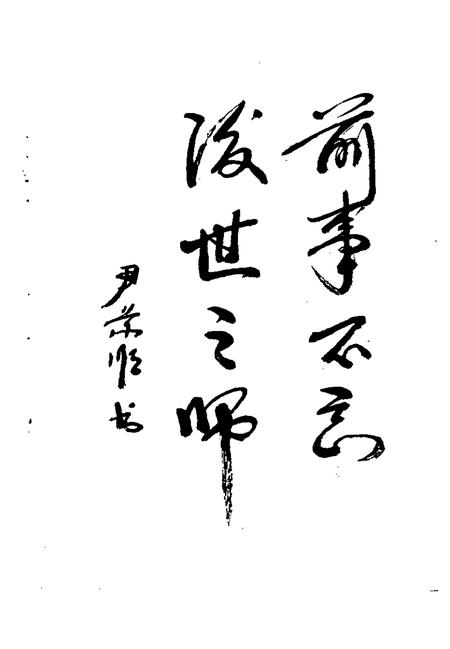 前事不忘
後世之师
尹荣顺书